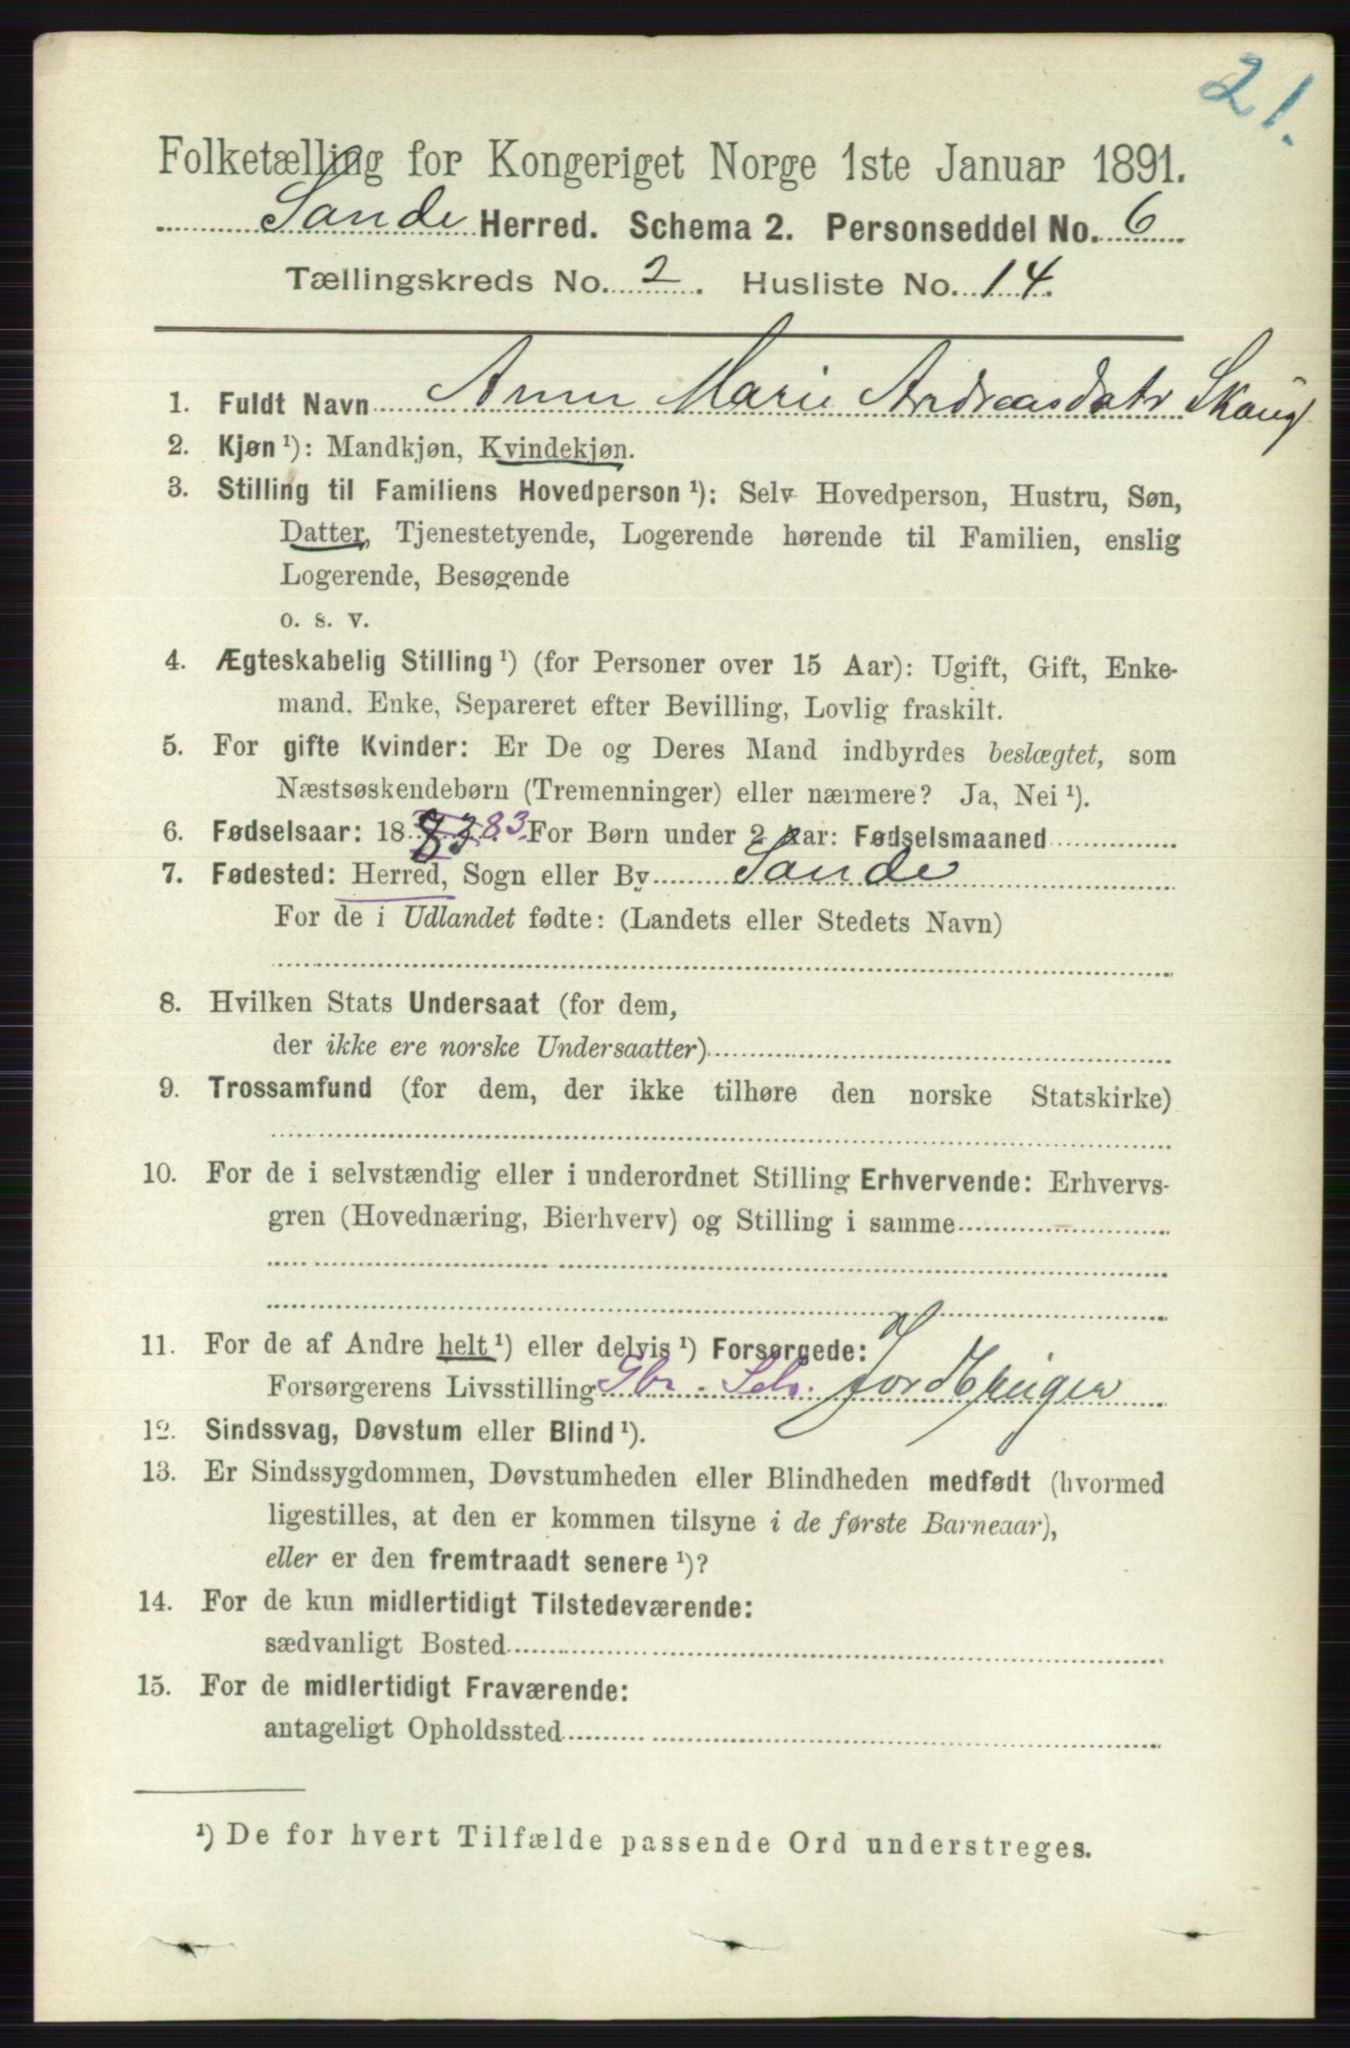 21.
Folketælling for Kongeriget Norge 1ste Januar 1891.
Sande Herred. Schema 2. Personseddel No. 6
Tællingskreds No. 2. Husliste No. 14.
1. Fuldt Navn Anne Marie Andreasdatr Skaug
2. Kjøn ¹): Mandkjøn, Kvindekjøn.
3. Stilling til Familiens Hovedperson ¹): Selv Hovedperson, Hustru, Søn,
Datter, Tjenestetyende, Logerende hørende til Familien, enslig
Logerende, Besøgende
o. s. v.
4. Ægteskabelig Stilling ¹) (for Personer over 15 Aar): Ugift, Gift, Enke-
mand, Enke, Separeret efter Bevilling, Lovlig fraskilt.
5. For gifte Kvinder: Er De og Deres Mand indbyrdes beslægtet, som
Næstsøskendebørn (Tremenninger) eller nærmere? Ja, Nei ¹).
6. Fødselsaar: 18 83 83. For Børn under 2 Aar: Fødselsmaaned
7. Fødested: Herred, Sogn eller By Sande
For de i Udlandet fødte: (Landets eller Stedets Navn)
8. Hvilken Stats Undersaat (for dem,
der ikke ere norske Undersaatter)
9. Trossamfund (for dem, der ikke tilhøre den norske Statskirke)
10. For de i selvstændig eller i underordnet Stilling Erhvervende: Erhvervs-
gren (Hovednæring, Bierhverv) og Stilling i samme
11. For de af Andre helt ¹) eller delvis ¹) Forsørgede:
Forsørgerens Livsstilling Gbr. Selv.
12. Sindssvag, Døvstum eller Blind ¹).
13. Er Sindssygdommen, Døvstumheden eller Blindheden medfødt (hvormed
ligestilles, at den er kommen tilsyne i de første Barneaar),
eller er den fremtraadt senere ¹)?
14. For de kun midlertidigt Tilstedeværende:
sædvanligt Bosted
15. For de midlertidigt Fraværende:
antageligt Opholdssted
¹) De for hvert Tilfælde passende Ord understreges.